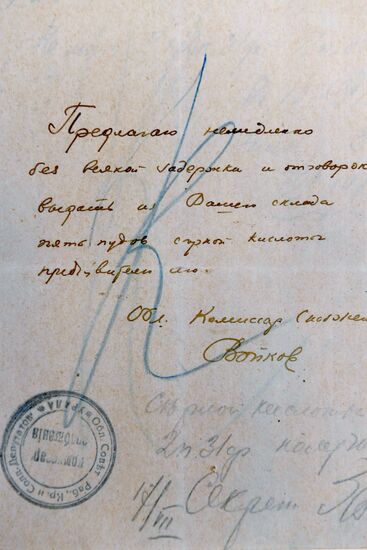 Предлагаю немедленно
без всякой задержки и отговорок
выдать из Вашего склада
пять пудов серной кислоты
предъявителю.
Обл. Комиссар Снабжен
Войков
Серной кислоты
2п. 31ф
17/VII Секрет
Урала Обл. Совѣт Раб., Кр. и Солд. Депутатов
Комиссар
снабжения